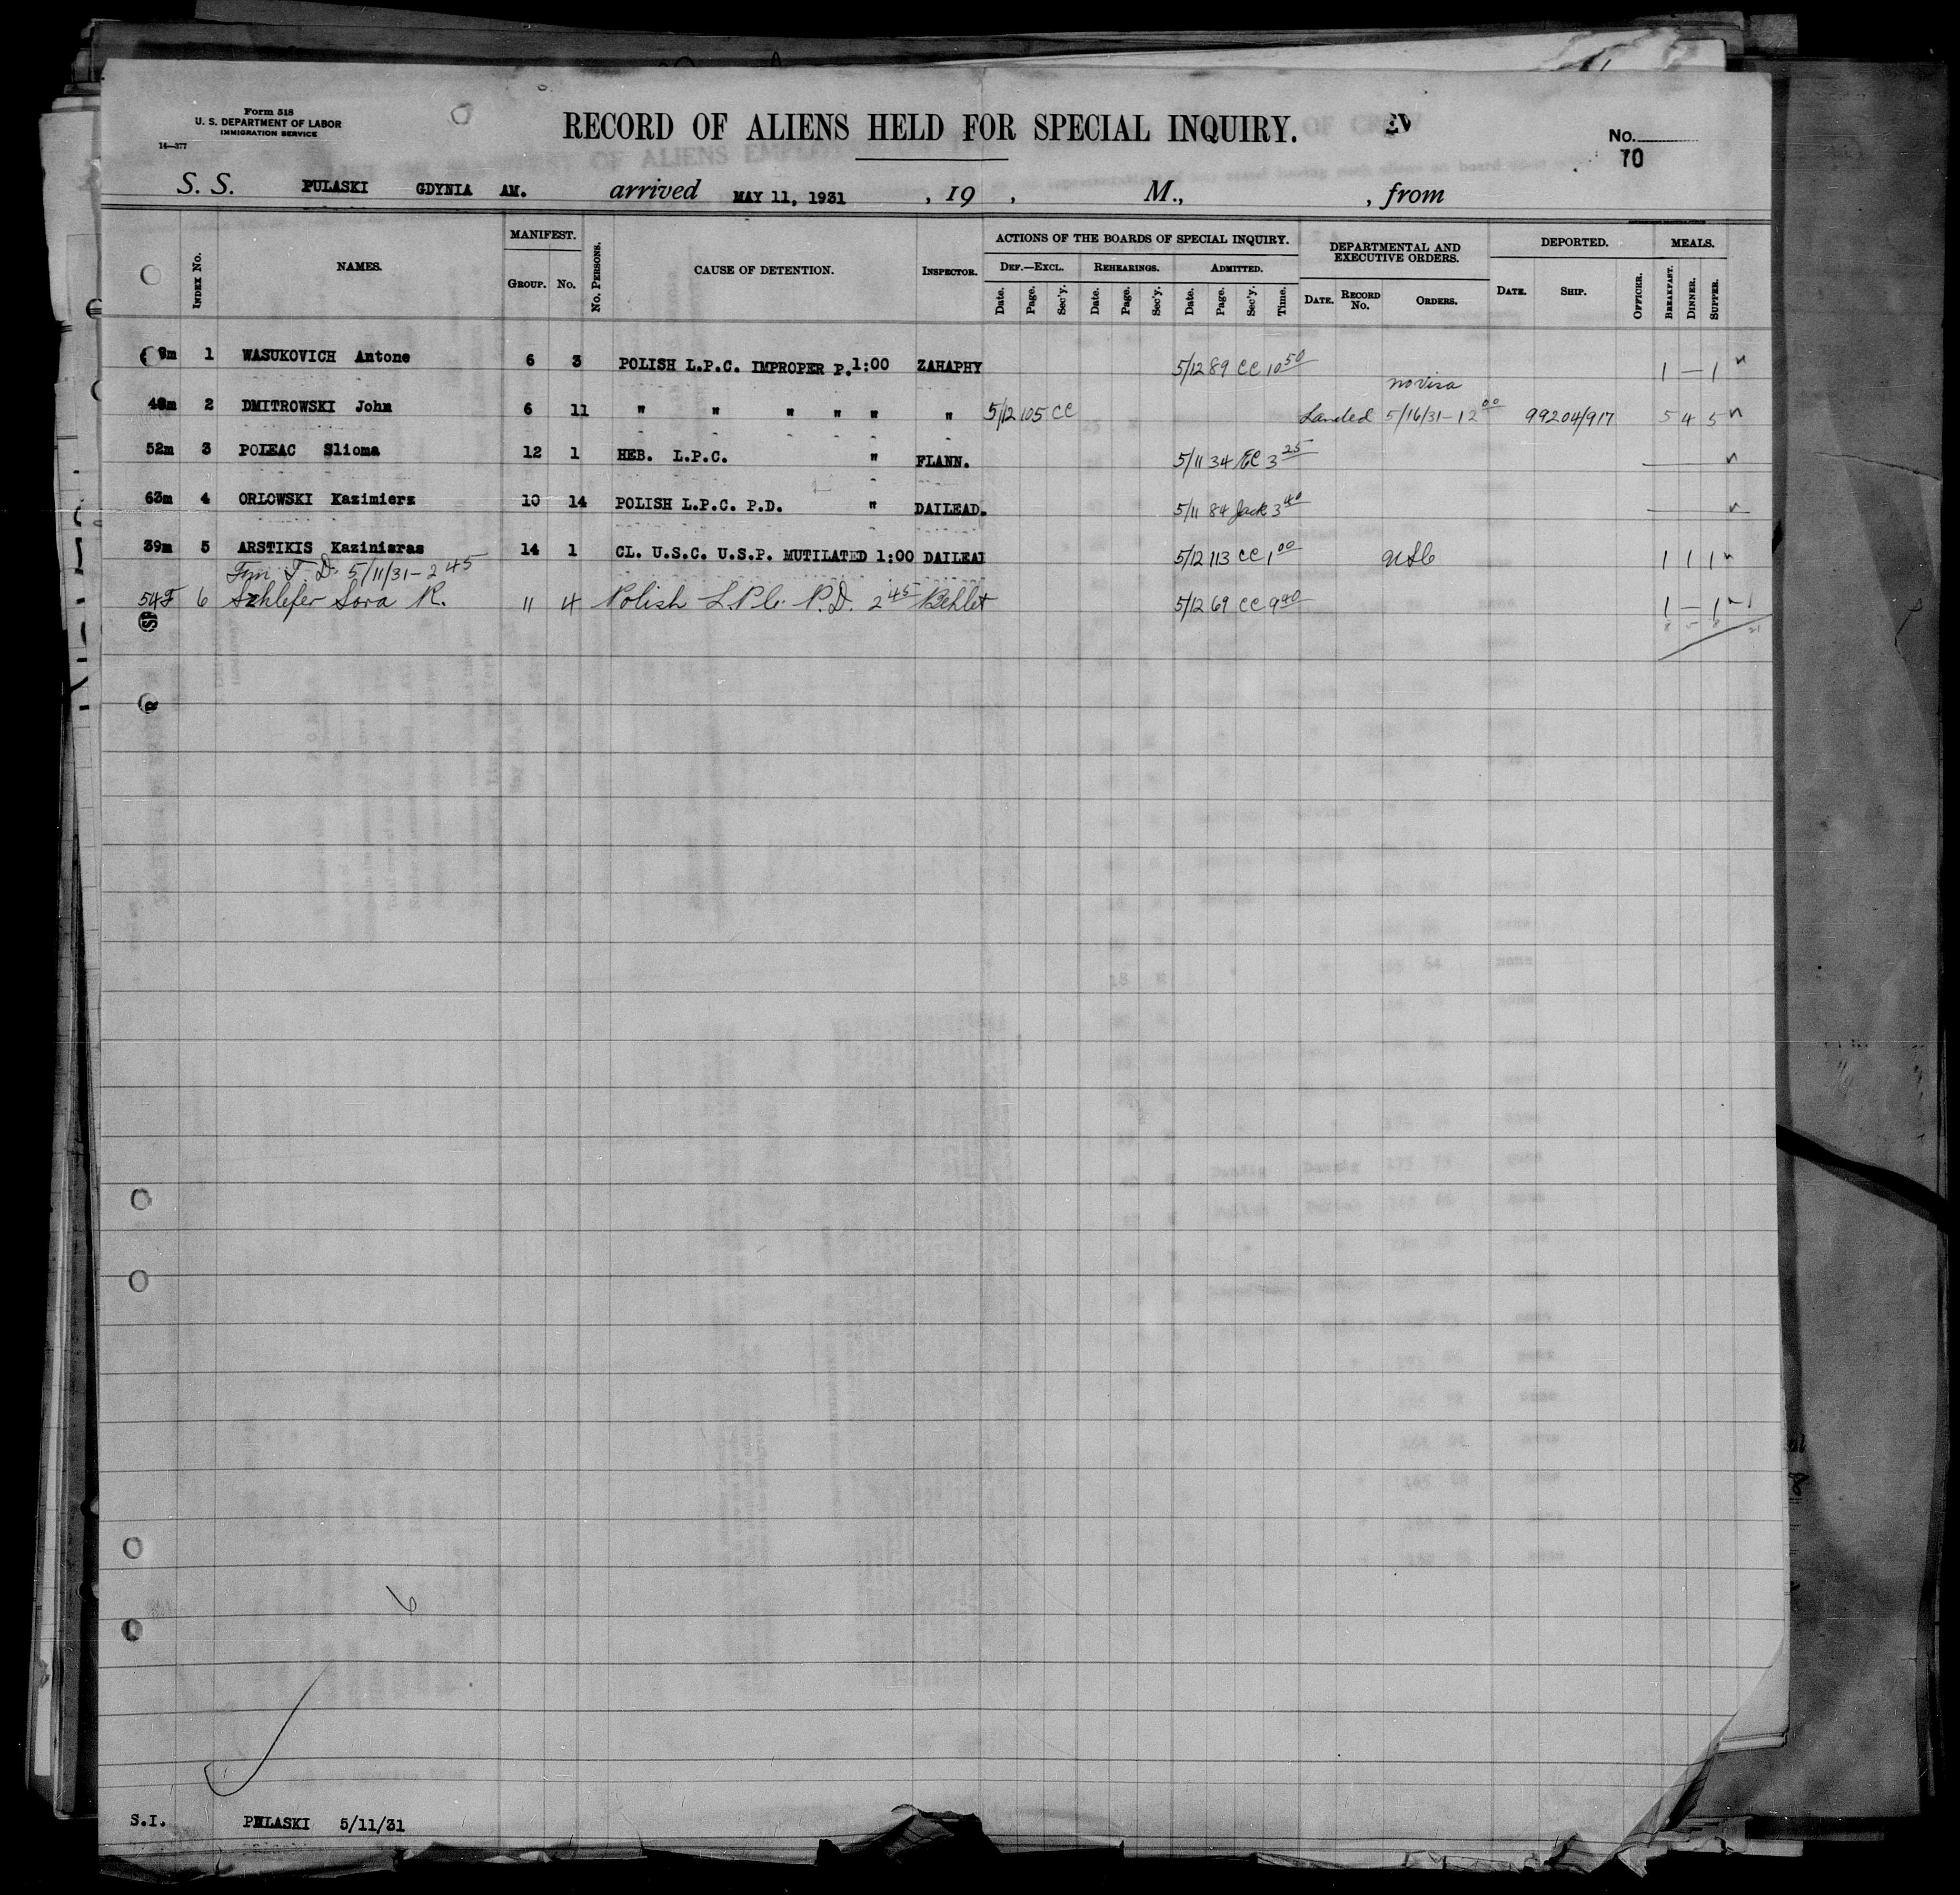 Form 518
U. S. DEPARTMENT OF LABOR
IMMIGRATION SERVICE
14—377
RECORD OF ALIENS HELD FOR SPECIAL INQUIRY.
No.
70
S. S. PULASKI GDYNIA AM. arrived MAY 11, 1931 , 19 , M., , from
INDEX No. NAMES. MANIFEST. GROUP. No. No. PERSONS. CAUSE OF DETENTION. INSPECTOR. ACTIONS OF THE BOARDS OF SPECIAL INQUIRY. DEF.—EXCL. Date. Page. Sec'y. REHEARINGS. Date. Page. Sec'y. ADMITTED. Date. Page. Sec'y. Time. DEPARTMENTAL AND EXECUTIVE ORDERS. DATE. RECORD No. ORDERS. DEPORTED. DATE. SHIP. OFFICER. MEALS. BREAKFAST. DINNER. SUPPER.
1 WASUKOVICH Antone 6 3 POLISH L.P.C. IMPROPER P. 1:00 ZAHAPHY 5/12 89 CC 10 50 1 — 1
no visa
48m 2 DMITROWSKI John 6 11 " " " " " " 5/12 105 CC Landed 5/16/31 - 12 00 99204/917 5 4 5
52m 3 POLEAC Slioma 12 1 HEB. L.P.C. " FLANN. 5/11 34 3 25
63m 4 ORLOWSKI Kazimierz 10 14 POLISH L.P.C. P.D. " DAILEAD. 5/11 84 Jack 3 40
39m 5 ARSTIKIS Kazinieras 14 1 CL. U.S.C. U.S.P. MUTILATED 1:00 DAILEAD 5/12 113 CC 1 00 USC 1 1 1
Fm T. D. 5/11/31 - 2 45
54F 6 Szhlefer Sora R. 11 4 Polish L.P.C. P.D. 2 45 5/12 69 CC 9 40 1 — 1
8 5 8 21
6
S.I. PULASKI 5/11/31